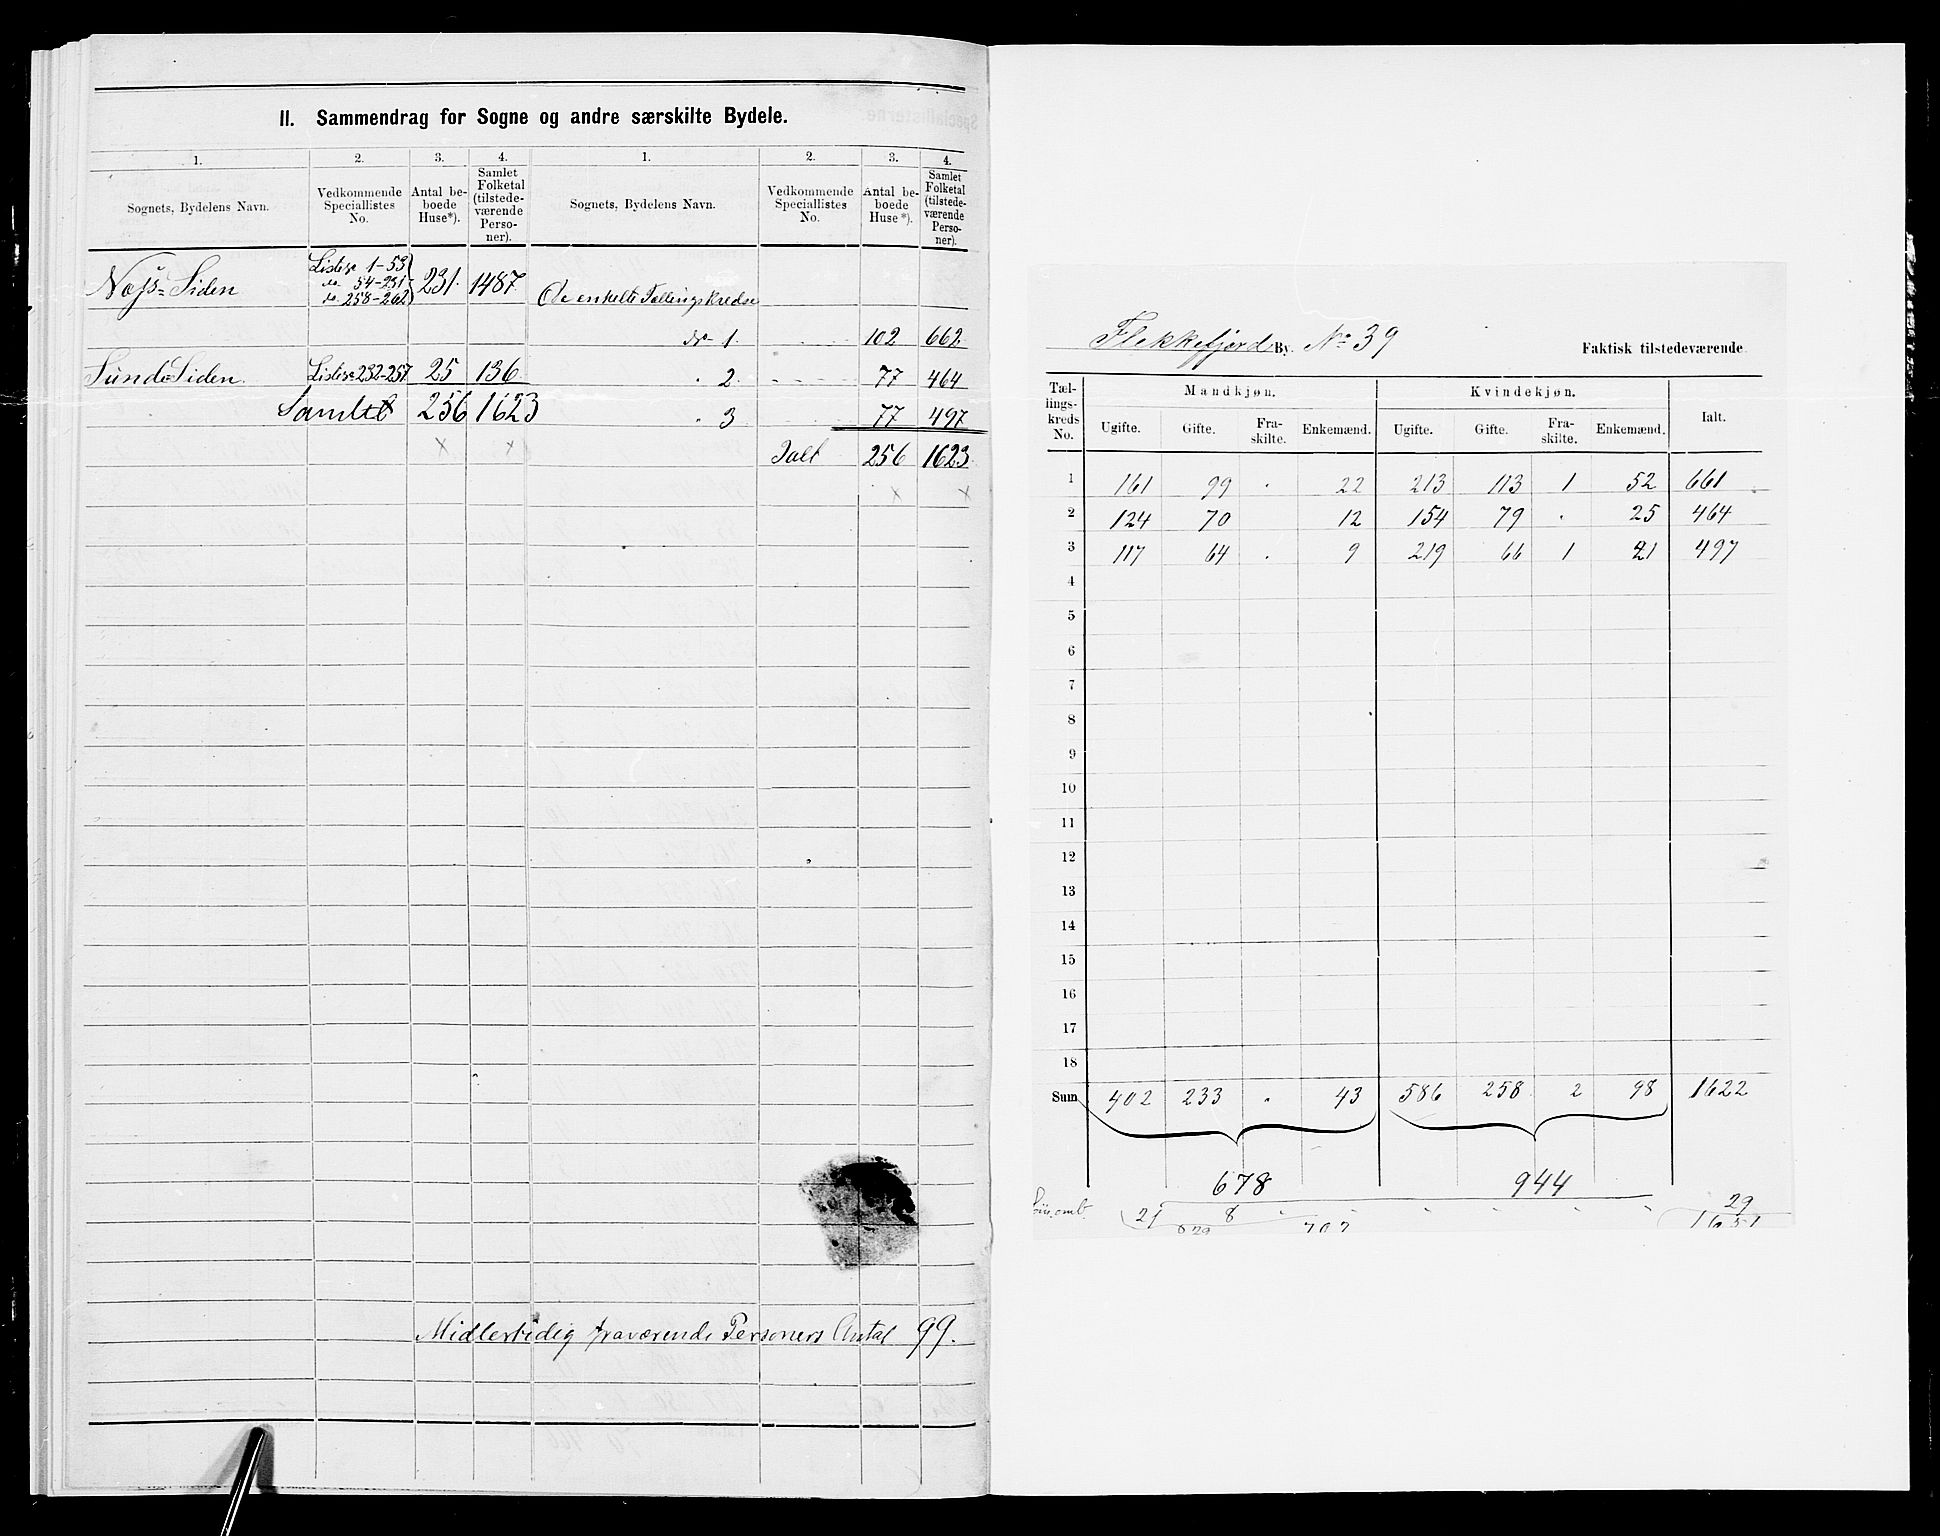 II. Sammendrag for Sogne og andre særskilte Bydele.
1. 2. 3. 4. 1. 2. 3. 4.
Sognets, Bydelens Navn. Vedkommende Speciallistes No. Antal beboede Huse*). Samlet Folketal (tilstedeværende Personer). Sognets, Bydelens Navn. Vedkommende Speciallistes No. Antal beboede Huse*). Samlet Folketal (tilstedeværende Personer).
Listerne 1-53
Næs-Siden do 54-231 231. 1487. De enkelte Tællingskredse
do 258-262
No 1. 102 662
Sunde Siden. Listerne 232-257 25 136. " 2. 77 464
Samlet 256 1623 " 3 77 497
× × Ialt 256 1623
× ×
Midlertidig fraværende Personers Antal 99.
Flekkefjord By. No 39 Faktisk tilstedeværende
Tællingskreds No. Mandkjøn. Kvindekjøn. Ialt.
Ugifte. Gifte. Fraskilte. Enkemænd. Ugifte. Gifte. Fraskilte. Enkemænd.
1 161 99 . 22 213 113 1 52 661
2 124 70 12 154 79 . 25 464
3 117 64 . 9 219 66 1 21 497
4
5
6
7
8
9
10
11
12
13
14
15
16
17
18
Sum 402 233 . 43 586 258 2 98 1622
678 944
omb. 21 8 29
707 1651